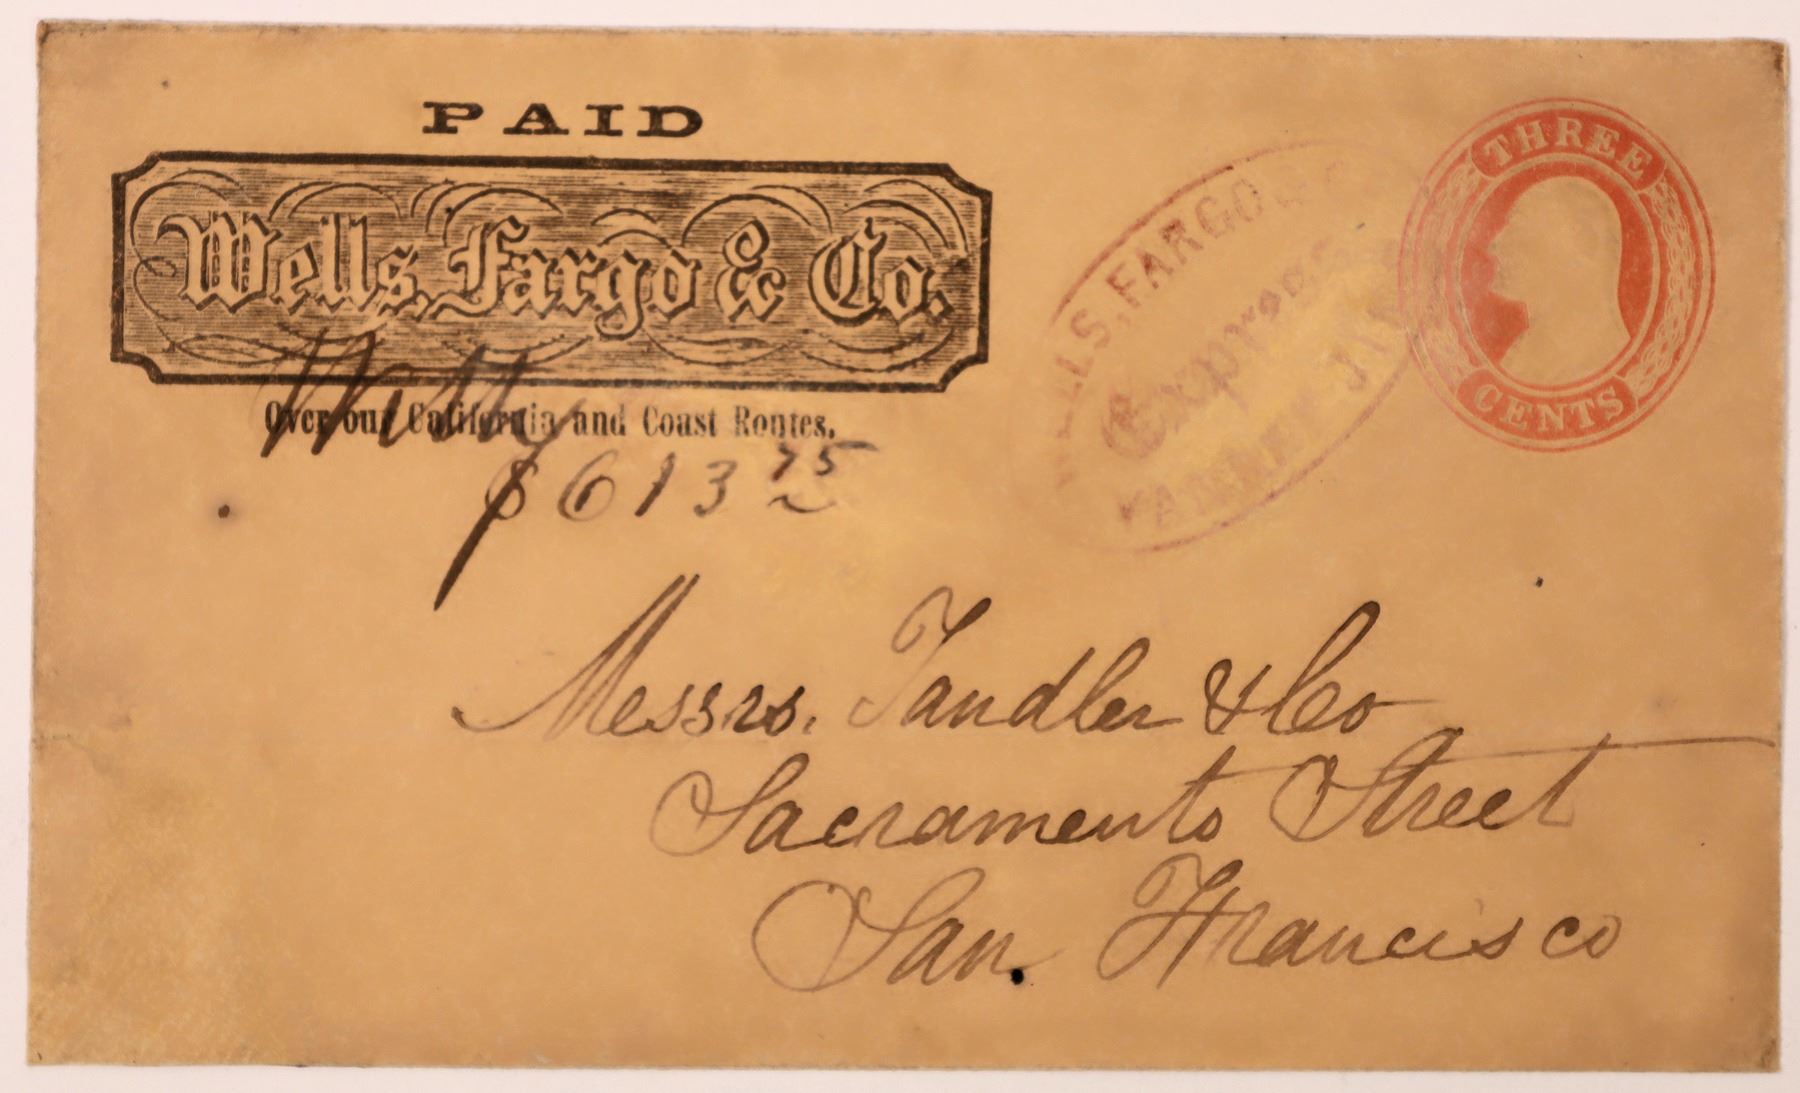 PAID
Wells, Fargo & Co.
Over our California and Coast Routes.
$613 75
WELLS, FARGO &
Express
THREE
CENTS
Messrs. Tandler & Co
Sacramento Street
San Francisco